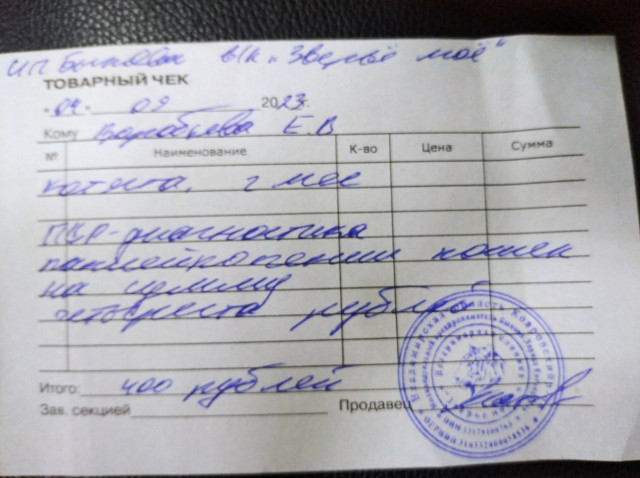 ИП в/к „Зверьё моё"
ТОВАРНЫЙ ЧЕК
"04" 09 2023г.
Кому Воробьева Е.В
№ Наименование К-во Цена Сумма
котята, 2 мес
ПЦР-диагностика
панлейкопении кошек
на сумму
четыреста рублей
Итого: 400 рублей
Зав. секцией Продавец
Владимирская область Ковровский